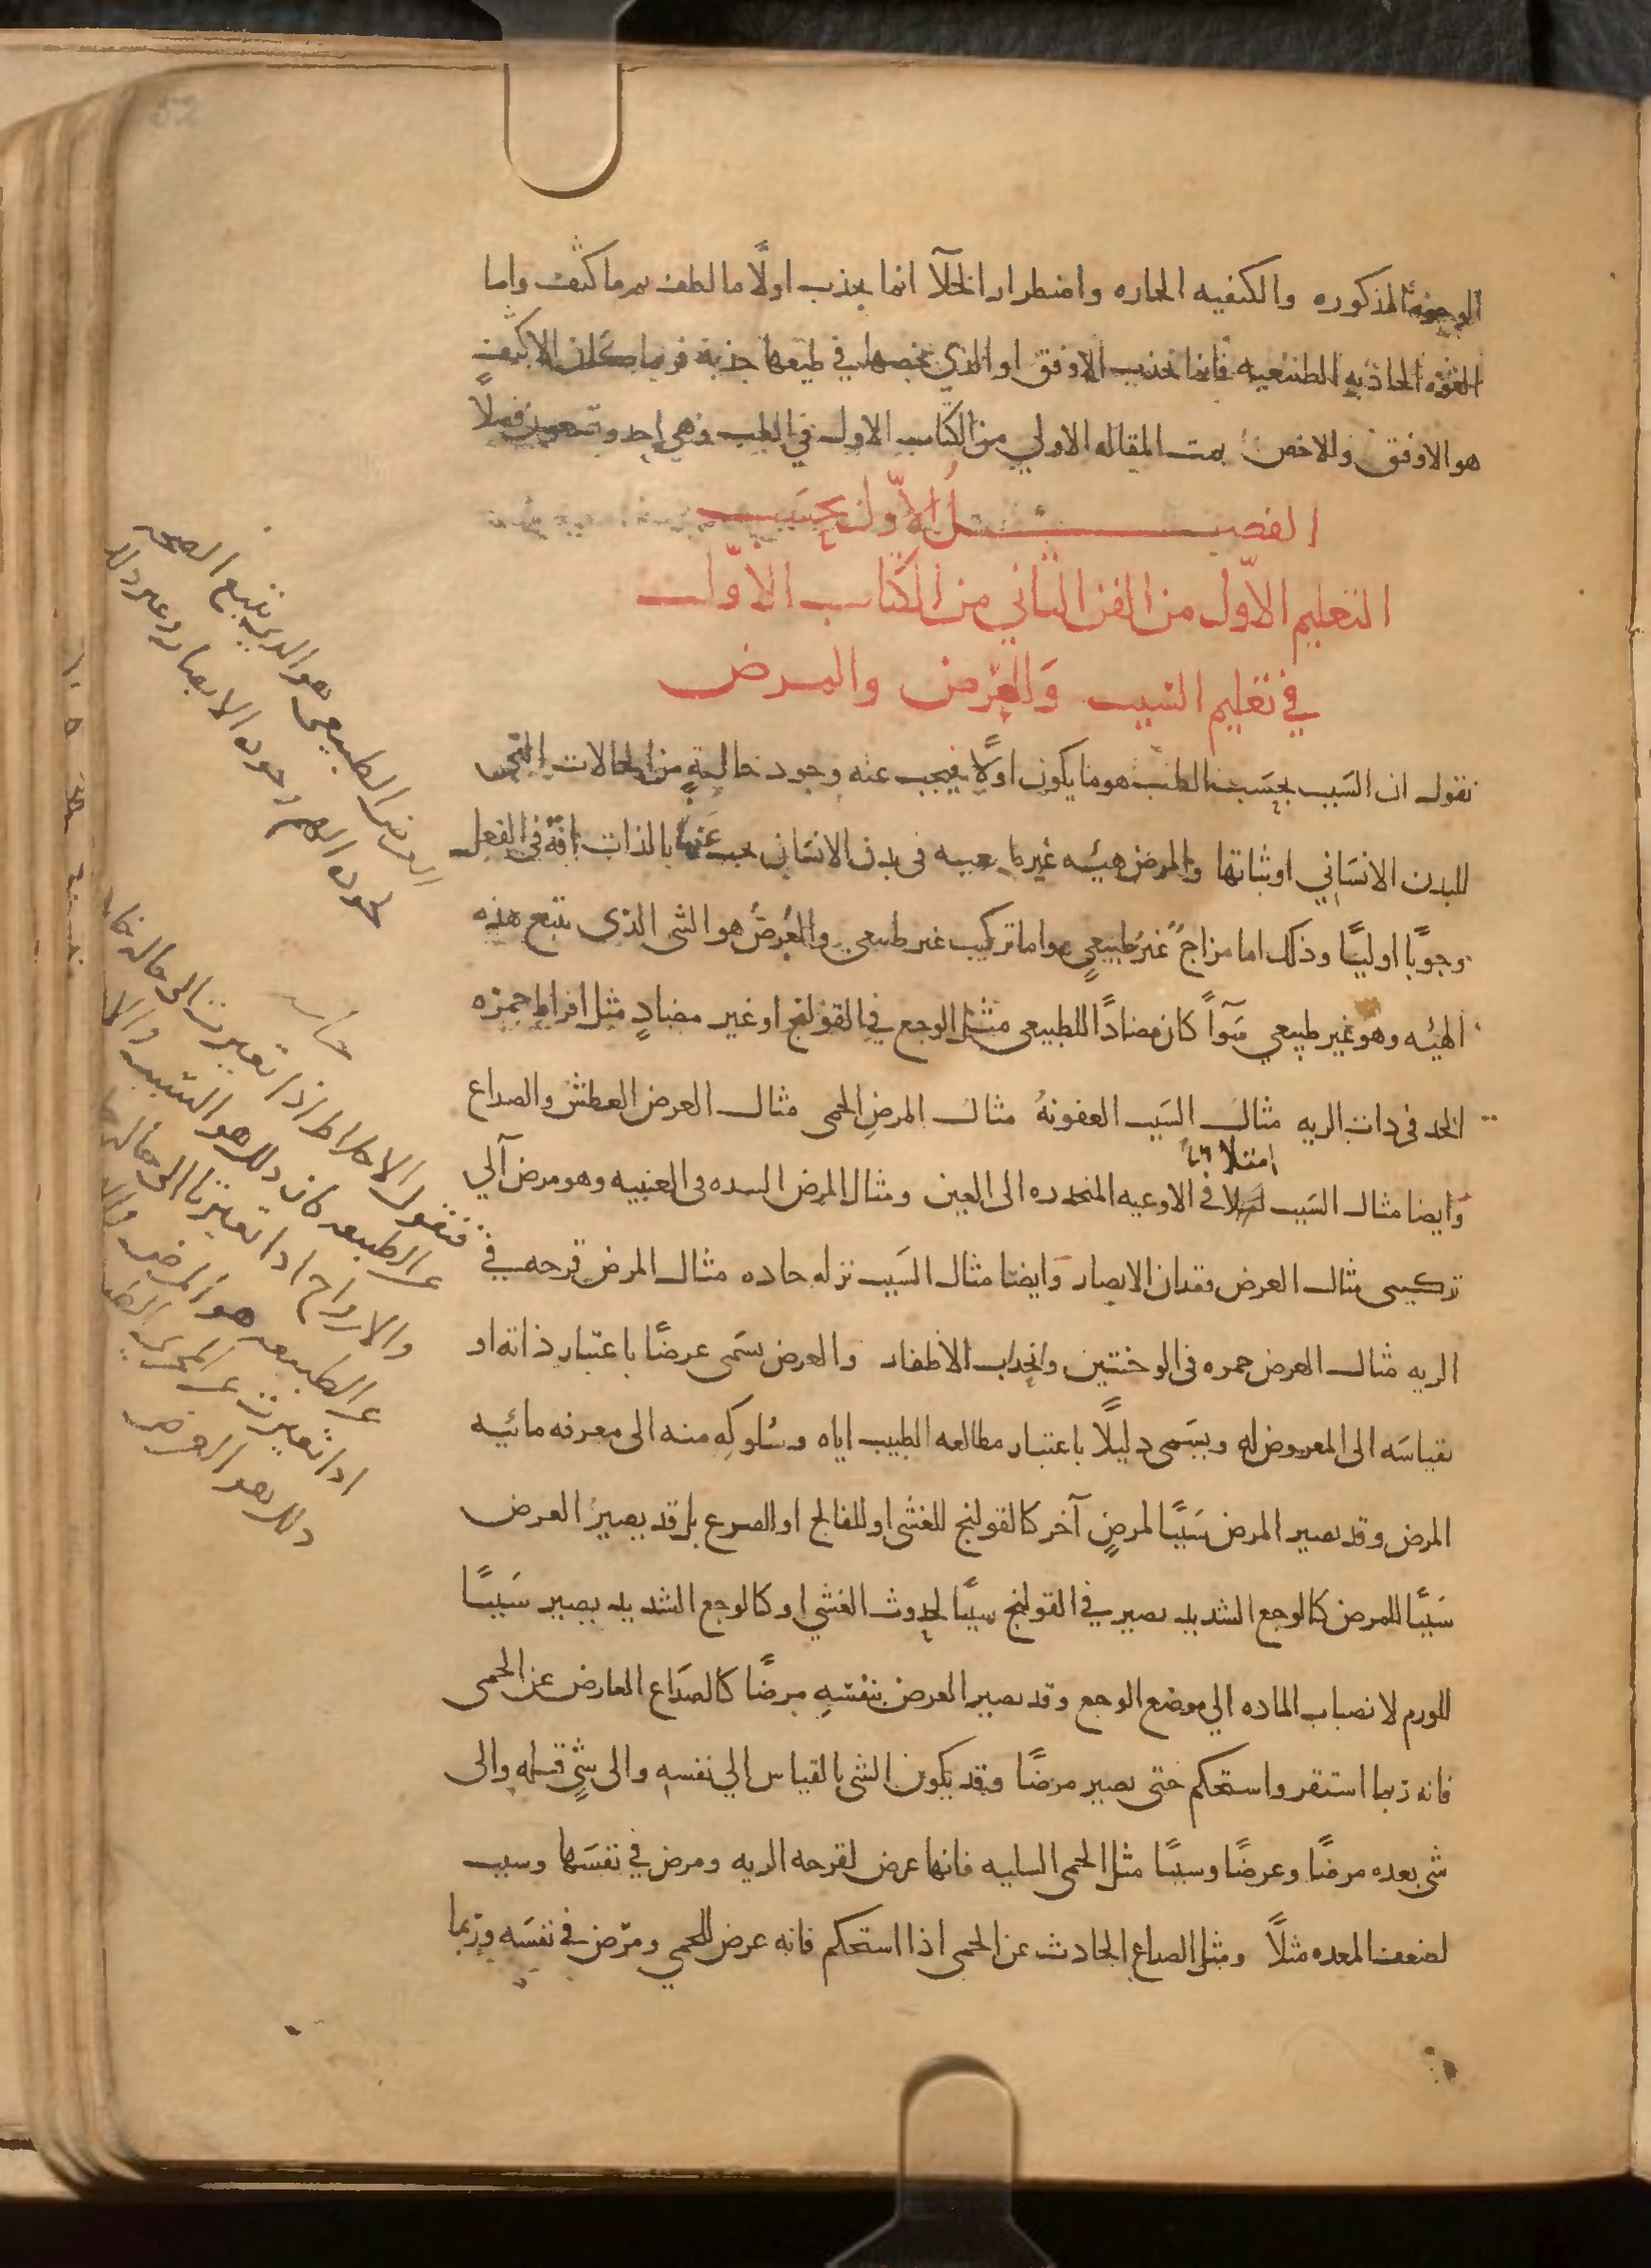 الوجوه المذكوره والكيفيه الحاره واضطرار الخلآ انما يجذب اولًا ما لطف ثم ما كثف واما
القوه الجاذبه الطبيعيه فانما تجذب الاوفق او الذي يخصها في طبعها جذبه فربما كان الاكثف
هو الاوفق والاخص تمت المقاله الاولي من الكتاب الاول في الطب وهي احد وتسعون فصلًا
الفصل الاوّل
التعليم الاوّل من الفن الثاني من الكتاب الاوّل
في تعليم السَبب وَالعرض والمرض
نقول ان السَبب بحسَب الطب هو ما يكون اولًا فيجب عنه وجود حالةٍ من الحالات التي
للبدن الانسَاني او ثباتها والمرض هيئه غير طبيعيه في بدن الانسَان يجب عَنها بالذات آفة في الفعل
وجوبًا اوليًا وذلك اما مزاج غير طبيعيٍ واما تركيب غير طبيعي والعَرضُ هو الشى الذى يتبع هذه
الهيئه وهو غير طبيعي سَوآً كان مضادًا للطبيعي مثل الوجع في القولنج او غير مضادٍ مثل افراط حمره
الخد فى ذات الريه مثال السَبب العفونهُ مثال المرضِ الحمى مثال العرض العطش والصداع
وَايضا مثال السَبب امتلا في الاوعيه المنحدره الى العين ومثال المرض السده فى العنبيه وهو مرض آلي
تركيبى مثال العرض فقدان الابصار وَايضا مثال السَبب نزله حاده مثال المرض قرحه في
الريه مثال العرض حمره فى الوجنتين وانجذاب الاظفار والعرض يسَمى عرضًا باعتبار ذاته او
بقياسَه الى المعروض له ويسَمى دليلًا باعتبار مطالعه الطبيب اياه وسُلوكِه منه الى معرفه مائيه
المرض وقد يصير المرض سَببًا لمرضٍ آخر كالقولنج للغشى او للفالج او الصرع بل قد يصيرُ العرض
سَببًا للمرض كالوجع الشديد يصير في القولنج سببًا لحدوث الغشي او كالوجع الشديد يصير سَببًا
للورم لانصباب الماده الي موضع الوجع وقد يصير العرض بنفسَهِ مرضًا كالصدَاع العارض عن الحمى
فانه ربما استقر واستحكم حتى يصير مرضًا وقد يكون الشى بالقياس الي نفسه والى شيٍ قبله والى
شى بعده مرضًا وعرضًا وسببًا مثل الحمى السليه فانها عرض لقرحه الريه ومرض في نفسَها وسبب
لضعف المعده مثلًا ومثل الصداع الحادث عن الحمى اذا استحكم فانه عرض للحمي ومرض في نفسَه وربما
الطبيعى هو الدى يتبع الصحه
فنقول الاخلاط اذا تغيرت الى حاله
عن الطبيعه كان ذلك هو السبب
والارواح اذا تغيرت الى حاله
عن الطبيعه هو المرض
اذا تغيرت عن المجرى
ذلك هو العرض